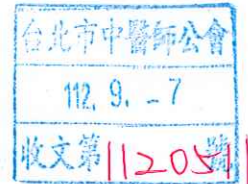 台北市中醫師公會
112. 9. -7
收文第1120511號